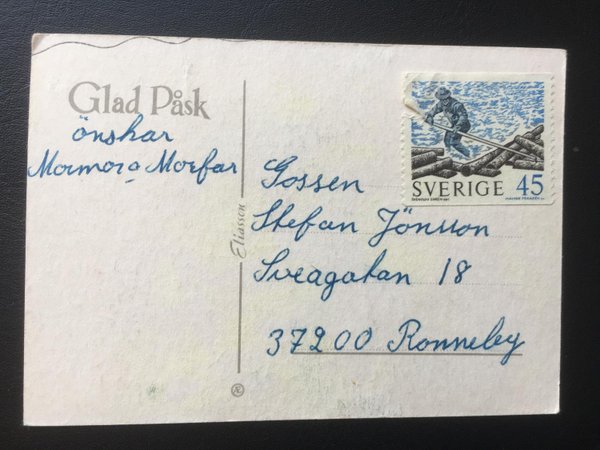 Glad Påsk
önskar
Mormor o Morfar
Eliasson
SVERIGE 45
Gossen
Stefan Jönsson
Sveagatan 18
37200 Ronneby